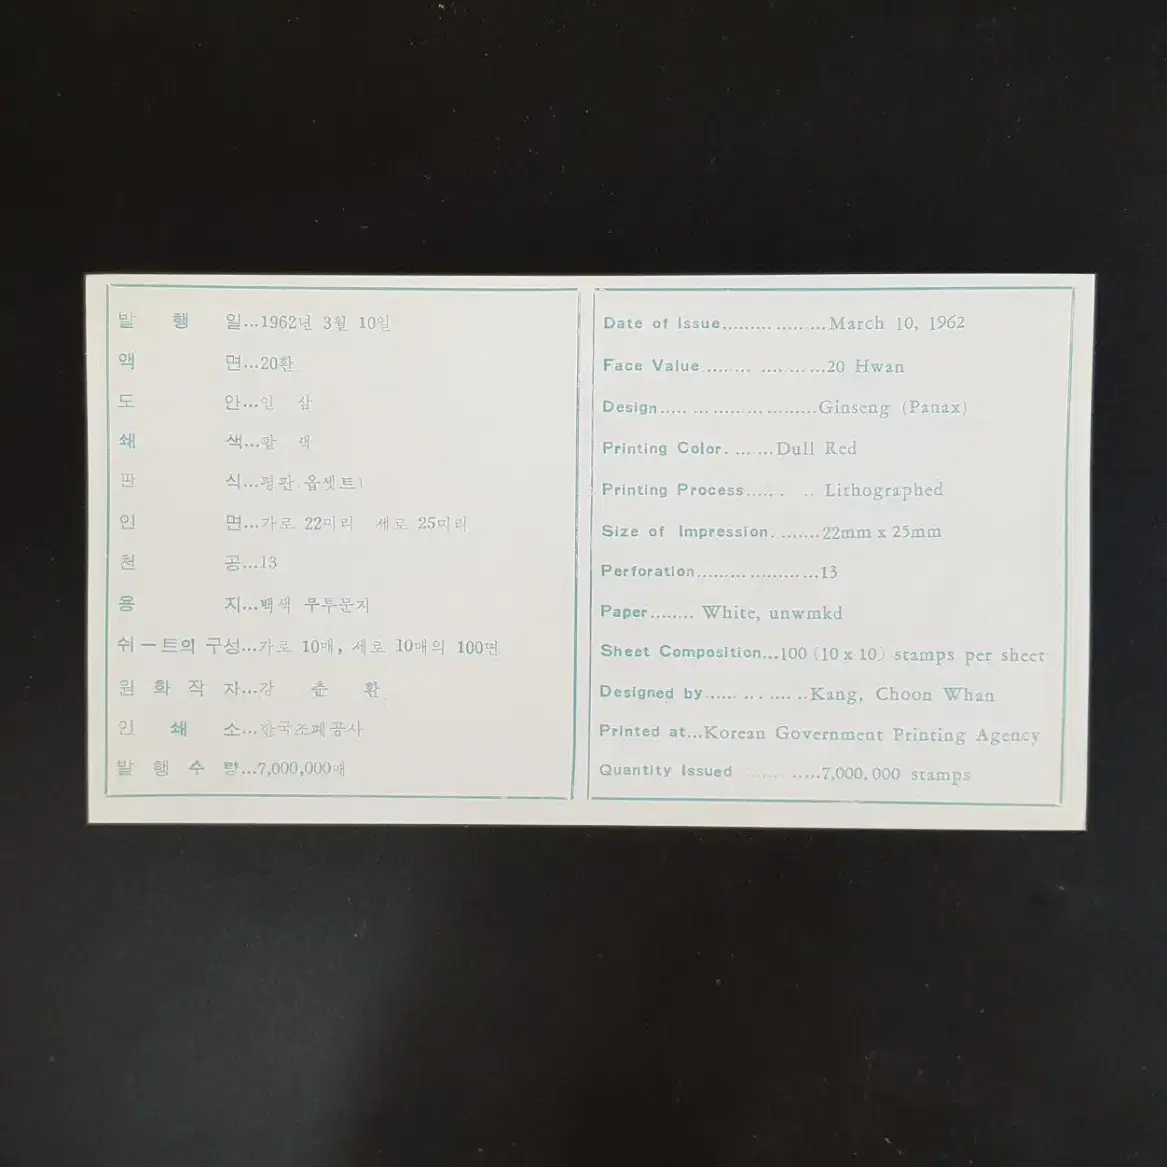 발 행 일...1962년 3월 10일
액 면...20환
도 안...인 삼
쇄 색...팥 색
판 식...평판(옵셋트)
인 면...가로 22미리 세로 25미리
천 공...13
용 지...백색 무투문지
쉬ー트의 구성...가로 10매, 세로 10매의 100면
원 화 작 자...강 춘 환
인 쇄 소...한국조폐공사
발 행 수 량...7,000,000매
Date of Issue.................March 10, 1962
Face Value ...................20 Hwan
Design..........................Ginseng (Panax)
Printing Color. ......Dull Red
Printing Process........ Lithographed
Size of Impression. .......22mm x 25mm
Perforation.....................13
Paper........ White, unwmkd
Sheet Composition...100 (10 x 10) stamps per sheet
Designed by.................Kang, Choon Whan
Printed at...Korean Government Printing Agency
Quantity Issued ............7,000,000 stamps